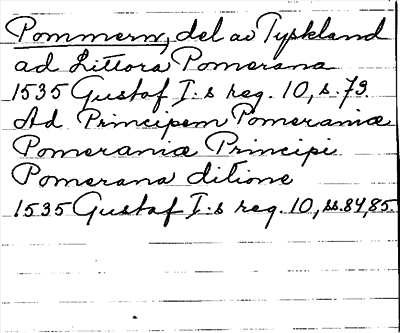 Pommern, del av Tyskland
ad Littora Pomerana
1535 Gustaf I:s reg. 10, s. 73.
Ad Principem Pomeraniæ
Pomeraniæ Principi
Pomerana ditione
1535 Gustaf I:s reg. 10, ss. 84, 85.